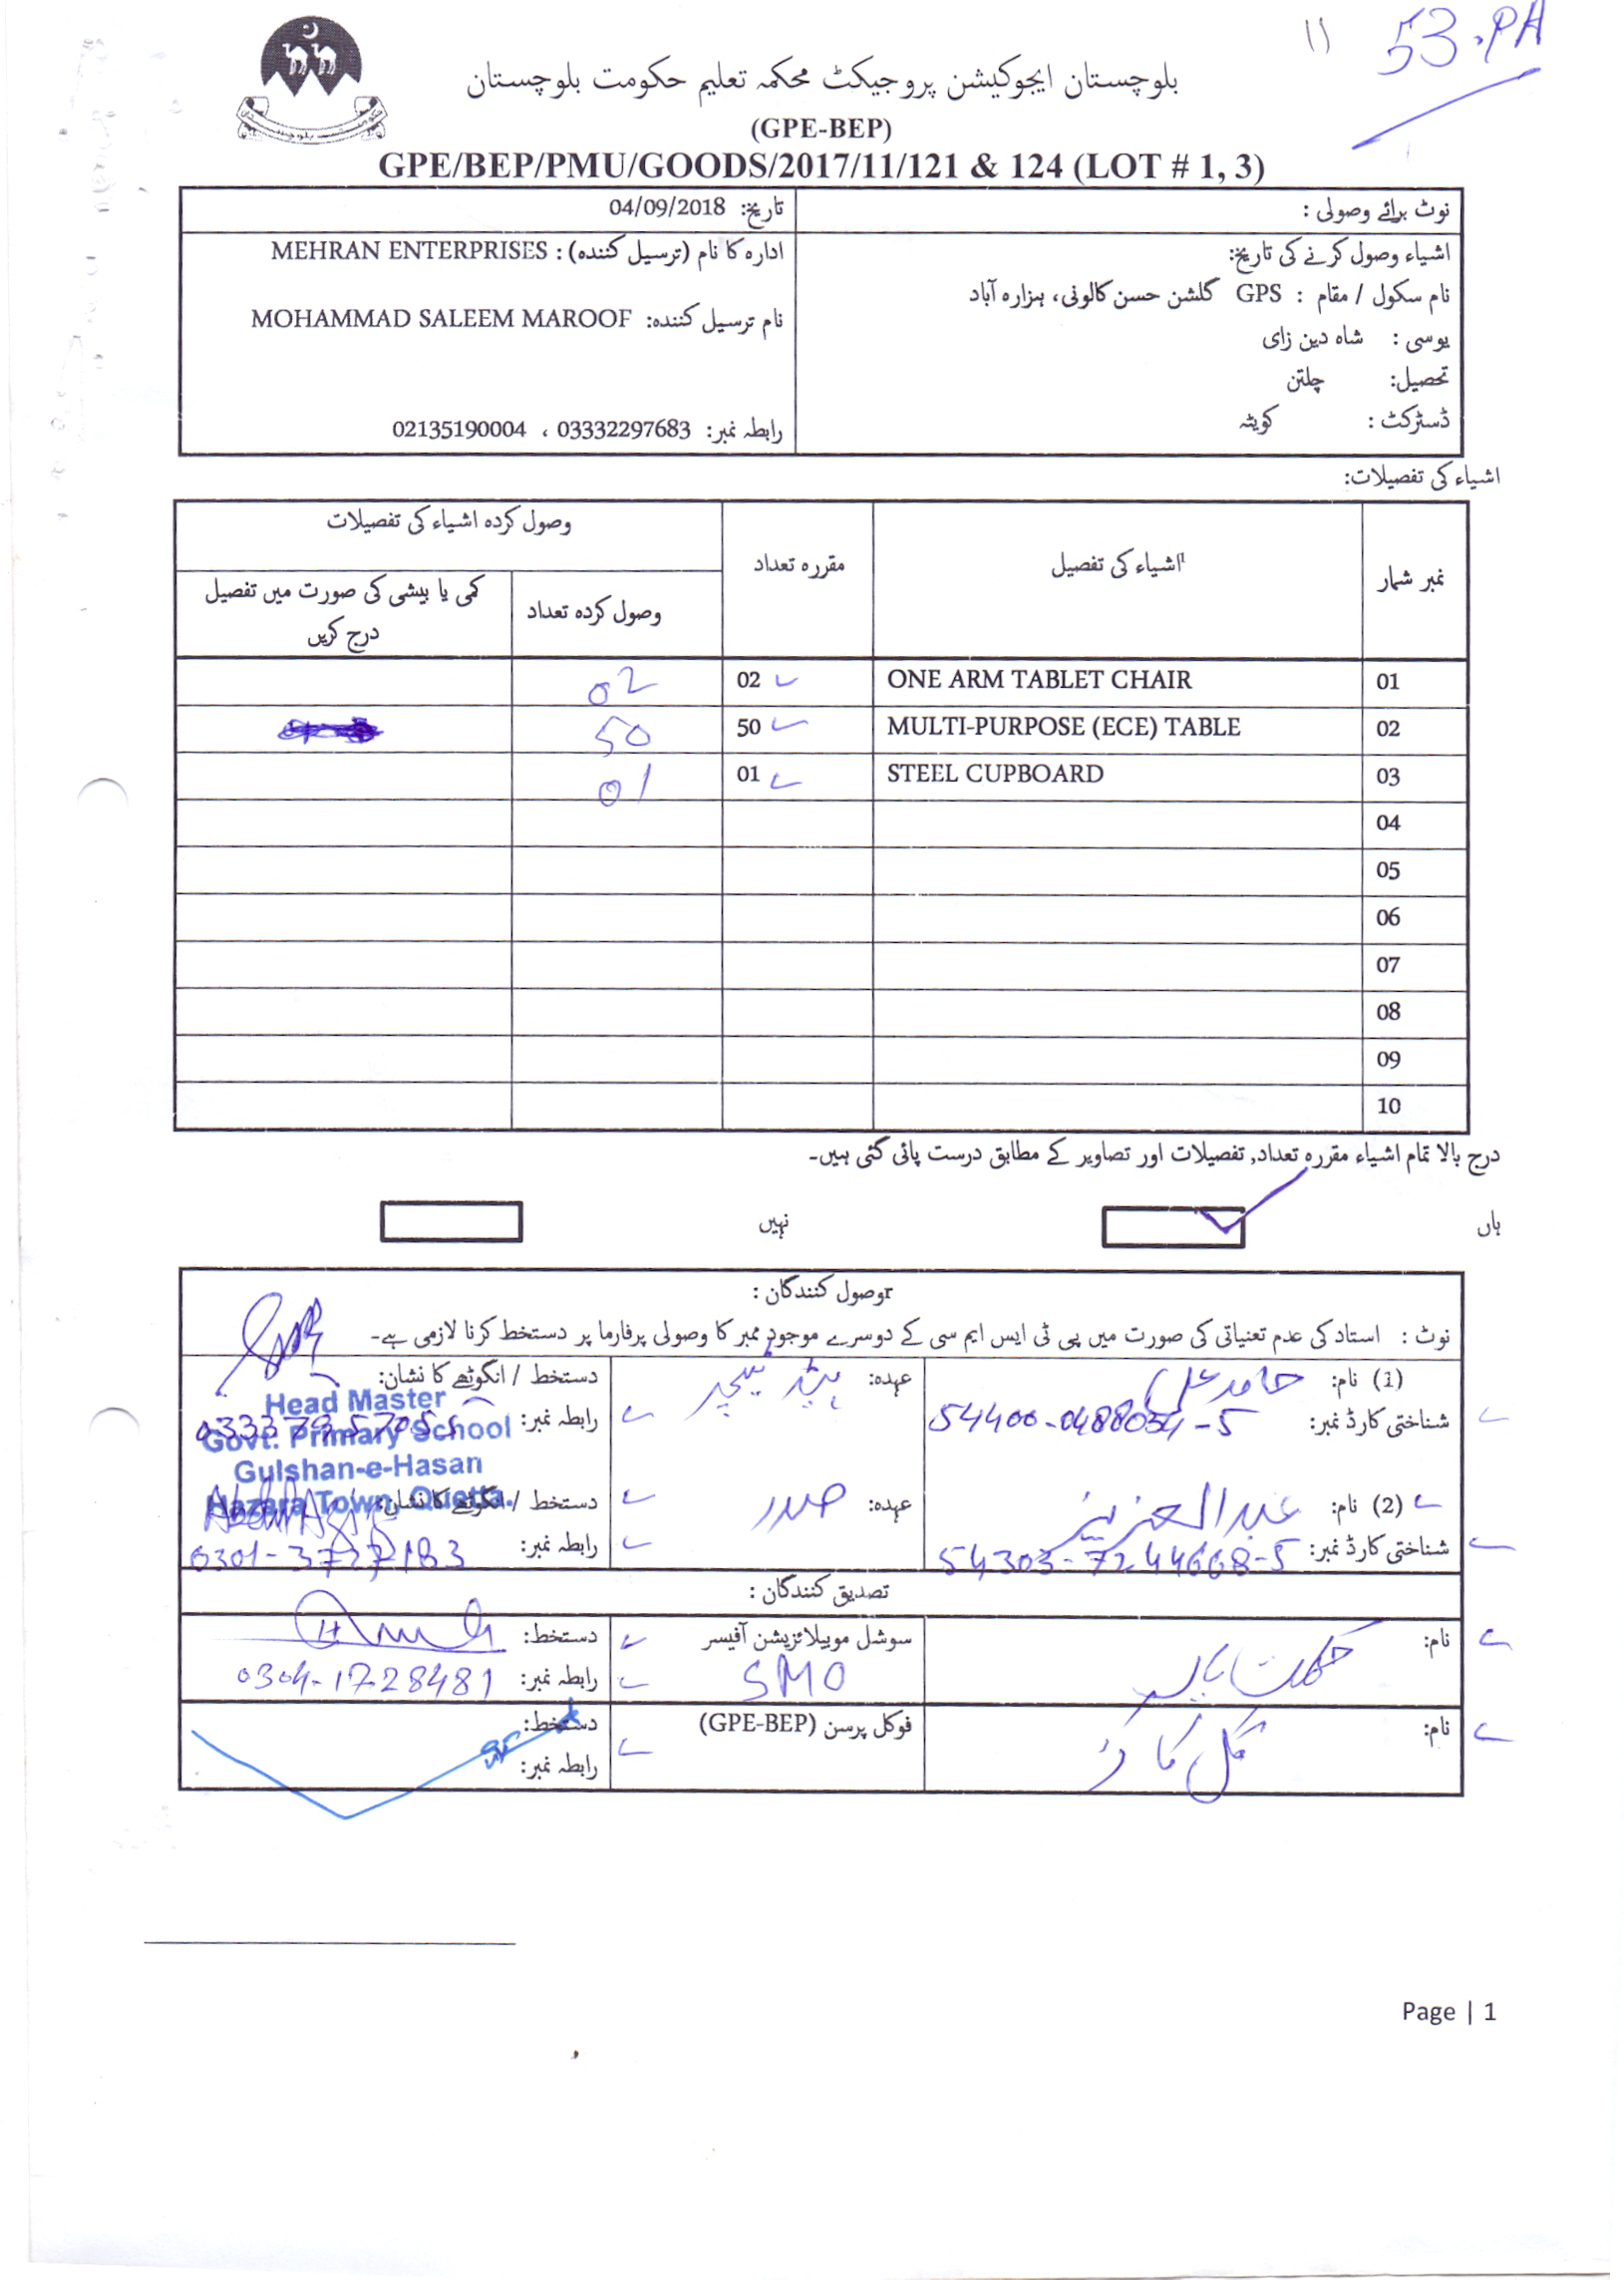 11 53.PA
بلوچستان ایجوکیشن پروجیکٹ محکمہ تعلیم حکومت بلوچستان
(GPE-BEP)
GPE/BEP/PMU/GOODS/2017/11/121 & 124 (LOT # 1, 3)
نوٹ برائے وصولی :
اشیاء وصول کرنے کی تاریخ:
نام سکول / مقام : GPS گلشن حسن کالونی، ہزارہ آباد
یوسی : شاہ دین زای
تحصیل: چلتن
ڈسٹرکٹ : کویٹہ
تاریخ: 04/09/2018
ادارہ کا نام (ترسیل کنندہ) : MEHRAN ENTERPRISES
نام ترسیل کنندہ: MOHAMMAD SALEEM MAROOF
رابطہ نمبر: 03332297683 ، 02135190004
اشیاء کی تفصیلات:
نمبر شمار اشیاء کی تفصیل مقررہ تعداد وصول کردہ اشیاء کی تفصیلات
وصول کردہ تعداد کمی یا بیشی کی صورت میں تفصیل درج کریں
01 ONE ARM TABLET CHAIR 02 02
02 MULTI-PURPOSE (ECE) TABLE 50 50
03 STEEL CUPBOARD 01 01
04
05
06
07
08
09
10
درج بالا تمام اشیاء مقررہ تعداد, تفصیلات اور تصاویر کے مطابق درست پائی گئی ہیں۔
ہاں نہیں
وصول کنندگان :
نوٹ : استاد کی عدم تعنیاتی کی صورت میں پی ٹی ایس ایم سی کے دوسرے موجود ممبر کا وصولی پرفارما پر دستخط کرنا لازمی ہے۔
(1) نام: حامد علی عہدہ: ہیڈ ٹیچر دستخط / انگوٹھے کا نشان:
شناختی کارڈ نمبر: 54400-0488054-5 رابطہ نمبر:
Head Master
Govt. Primary School
Gulshan-e-Hasan
Hazara Town, Quetta.
(2) نام: عبدالعزیز عہدہ: صدر دستخط / انگوٹھے کا نشان:
شناختی کارڈ نمبر: 54303-7244668-5 رابطہ نمبر: 0301-3727183
تصدیق کنندگان :
نام: سوشل موبیلائزیشن آفیسر دستخط:
SMO رابطہ نمبر: 0304-1728481
نام: فوکل پرسن (GPE-BEP) دستخط:
رابطہ نمبر:
Page | 1